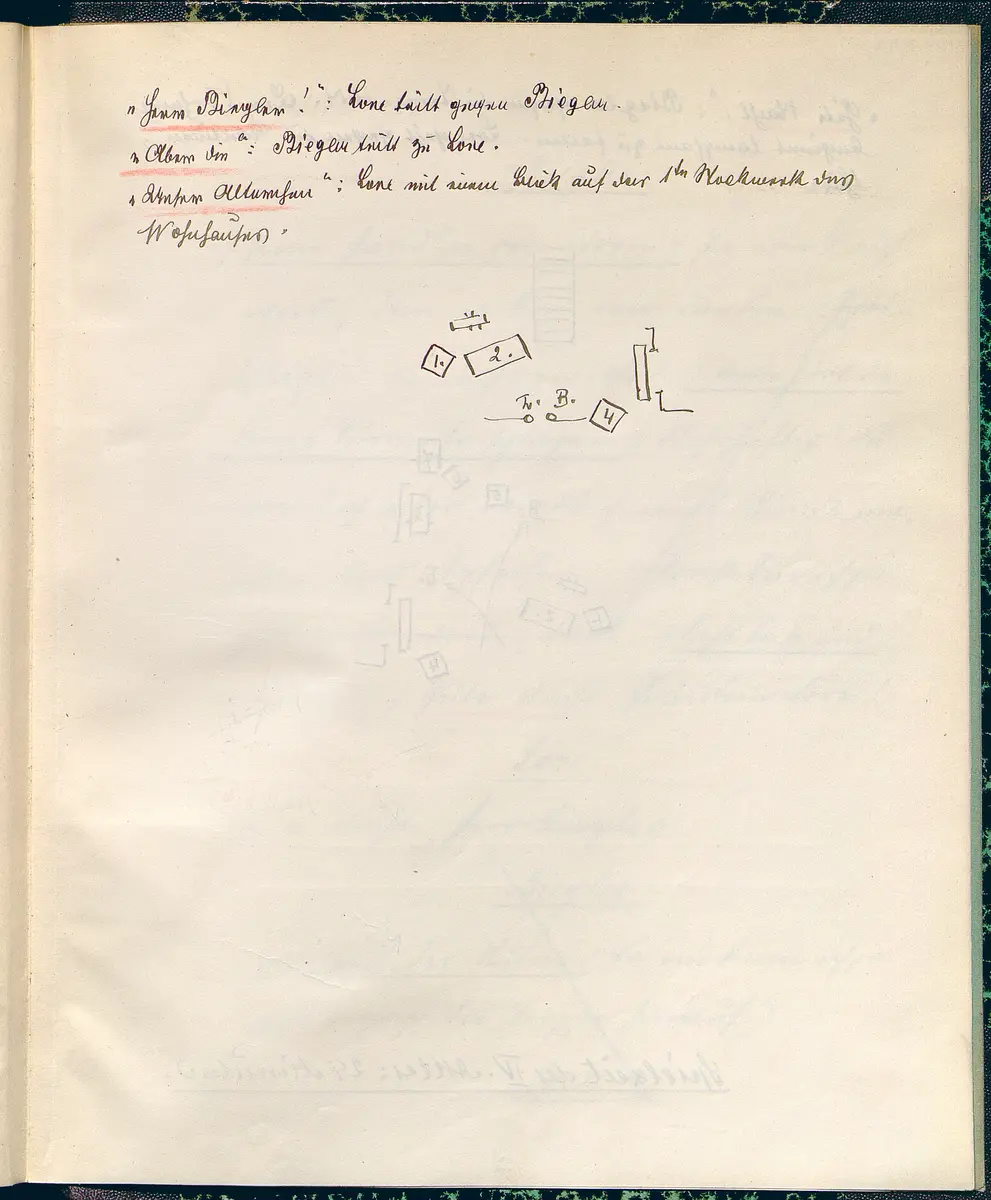 „Herr Biegler!“: Lore tritt gegen Biegler.
„Aber die“: Biegler tritt zu Lore.
„Unser Allerhen“; Lore mit einem Blick auf das 1te Stockwerk des
Wohnhauses.
1. 2.
L. B.
4